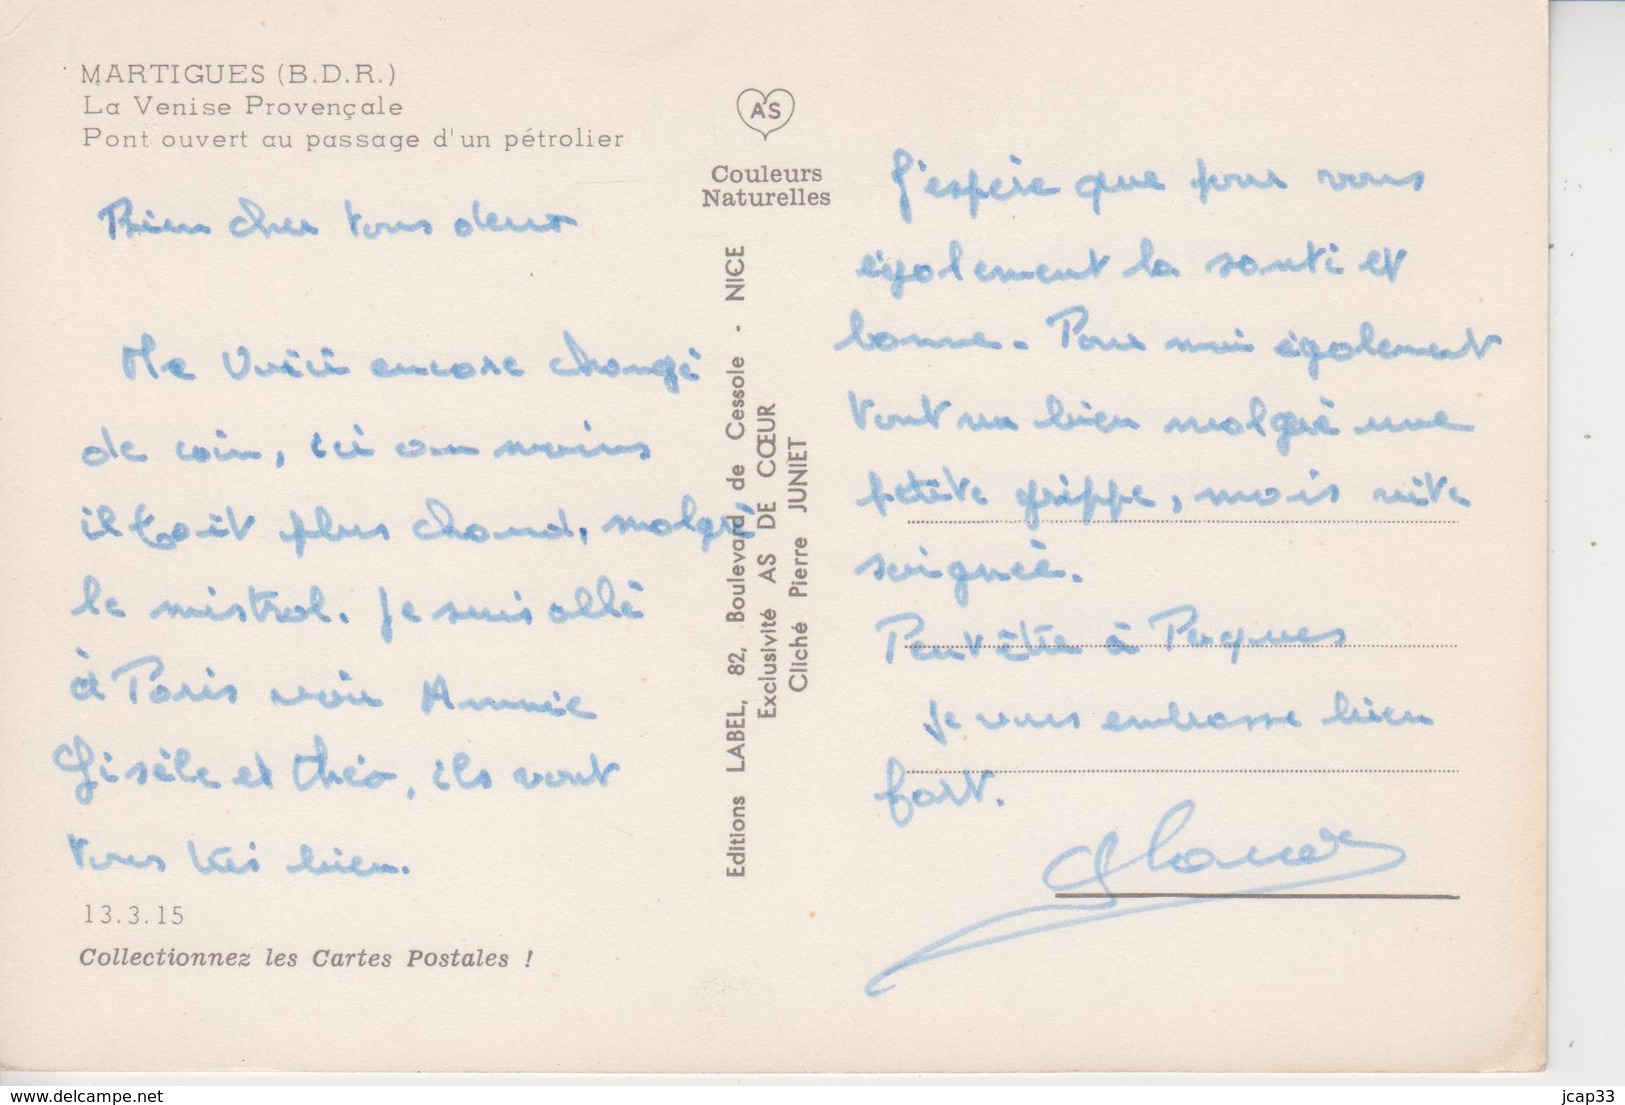 MARTIGUES (B.D.R.)
La Venise Provençale
Pont ouvert au passage d'un pétrolier
Bien cher tous deux
Me Voici encore changé
de coin, ici au moins
il fait plus chaud, malgré
le mistral. Je suis allé
à Paris voir Annie
Gisèle et Théo, ils vont
tous très bien.
13.3.15
Collectionnez les Cartes Postales !
AS
Couleurs
Naturelles
Editions LABEL, 82, Boulevard de Cessole - NICE
Exclusivité AS DE CŒUR
Cliché Pierre JUNIET
J'espère que pour vous
également la santé est
bonne. Pour moi également
tout va bien malgré une
petite grippe, mais vite
soignée.
Peut être à Paques
Je vous embrasse bien
fort.
delcampe.net
jcap33